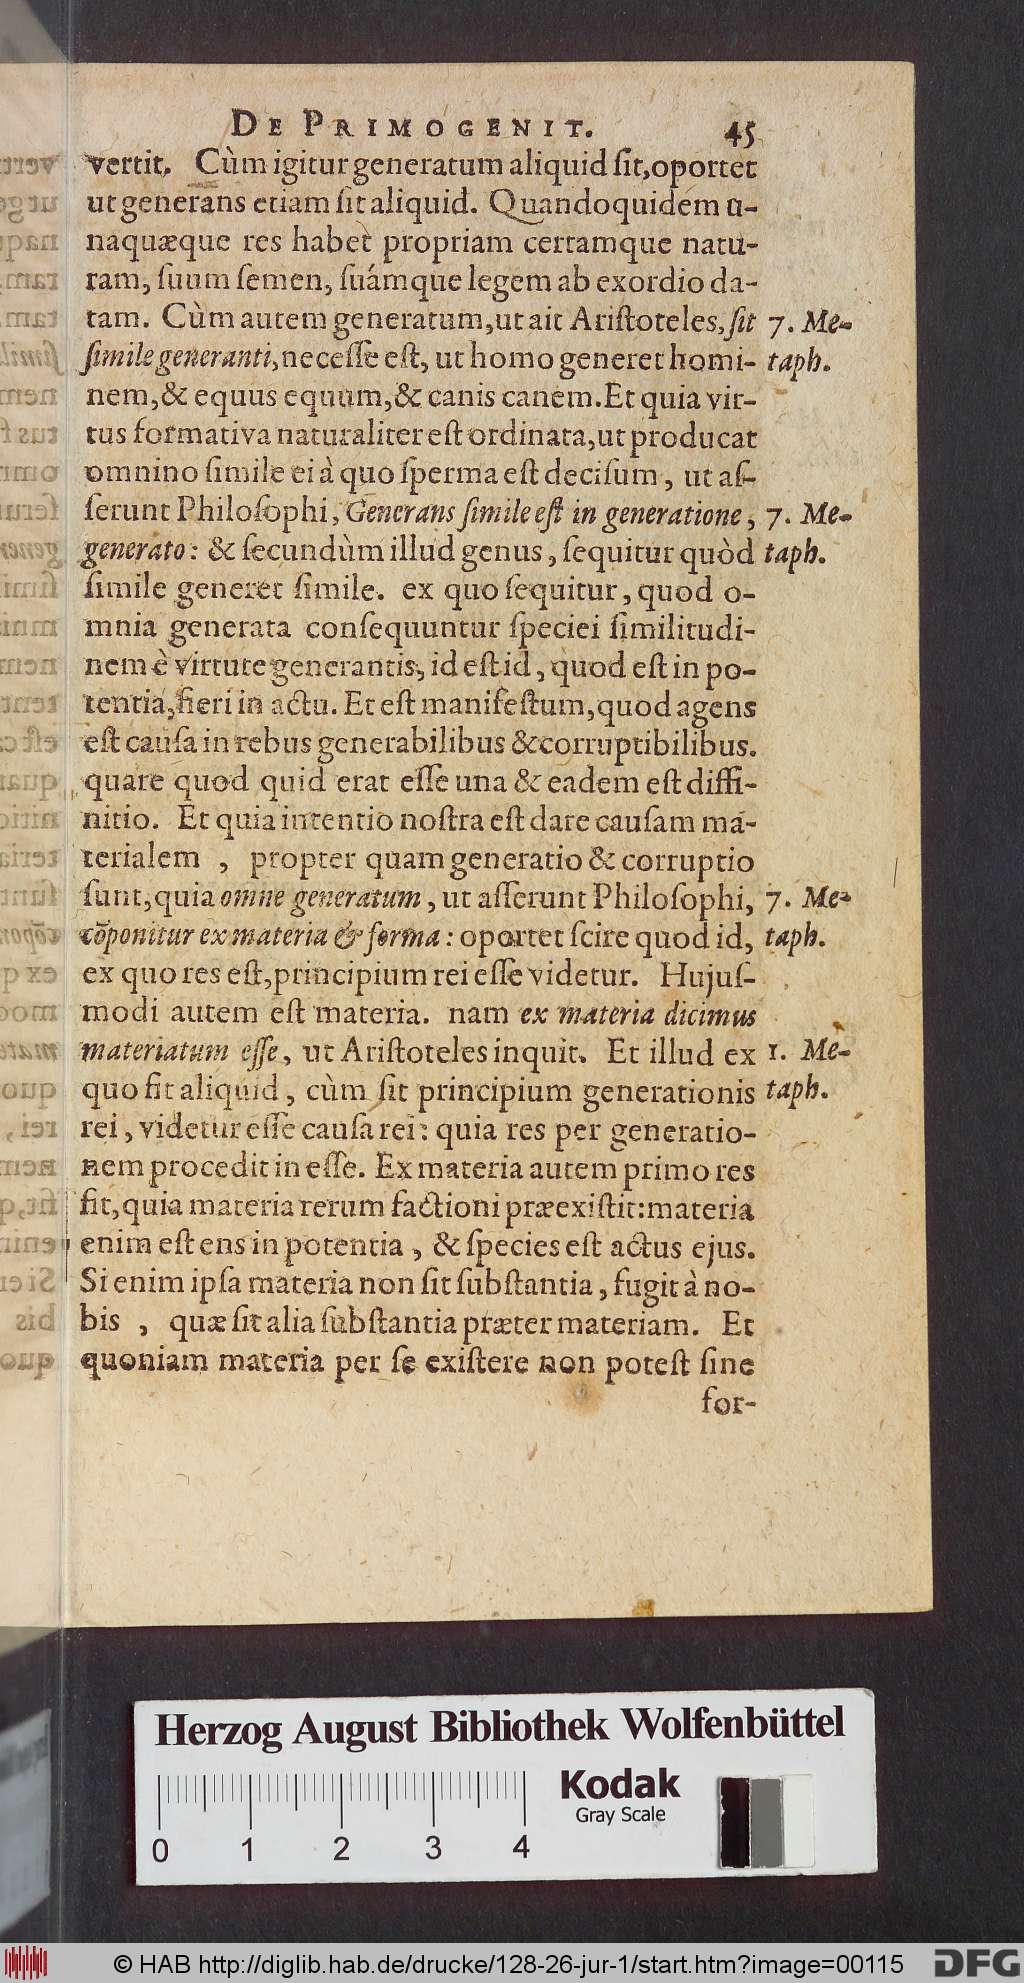 DE PRIMOGENIT. 45
vertit. Cùm igitur generatum aliquid ſit, oportet
ut generans etiam ſit aliquid. Quandoquidem u-
naquæque res habet propriam certamque natu-
ram, ſuum ſemen, ſuámque legem ab exordio da-
tam. Cùm autem generatum, ut ait Ariſtoteles, ſit 7. Me-
ſimile generanti, neceſſe eſt, ut homo generet homi- taph.
nem, & equus equum, & canis canem. Et quia vir-
tus formativa naturaliter eſt ordinata, ut producat
omnino ſimile ei à quo ſperma eſt deciſum, ut aſ-
ſerunt Philoſophi, Generans ſimile eſt in generatione, 7. Me-
generato: & ſecundùm illud genus, ſequitur quòd taph.
ſimile generet ſimile. ex quo ſequitur, quod o-
mnia generata conſequuntur ſpeciei ſimilitudi-
nem è virtute generantis, id eſt id, quod eſt in po-
tentia, fieri in actu. Et eſt manifeſtum, quod agens
eſt cauſa in rebus generabilibus & corruptibilibus.
quare quod quid erat eſſe una & eadem eſt diffi-
nitio. Et quia intentio noſtra eſt dare cauſam ma-
terialem, propter quam generatio & corruptio
ſunt, quia omne generatum, ut aſſerunt Philoſophi, 7. Me-
cõponitur ex materia & forma: oportet ſcire quod id, taph.
ex quo res eſt, principium rei eſſe videtur. Hujuſ-
modi autem eſt materia. nam ex materia dicimus
materiatum eſſe, ut Ariſtoteles inquit. Et illud ex 1. Me-
quo fit aliquid, cùm ſit principium generationis taph.
rei, videtur eſſe cauſa rei: quia res per generatio-
nem procedit in eſſe. Ex materia autem primo res
fit, quia materia rerum factioni præexiſtit: materia
enim eſt ens in potentia, & ſpecies eſt actus ejus.
Si enim ipſa materia non ſit ſubſtantia, fugit à no-
bis, quæ ſit alia ſubſtantia præter materiam. Et
quoniam materia per ſe exiſtere non poteſt ſine
for-
Herzog August Bibliothek Wolfenbüttel
Kodak
Gray Scale
0 1 2 3 4
© HAB http://diglib.hab.de/drucke/128-26-jur-1/start.htm?image=00115
DFG